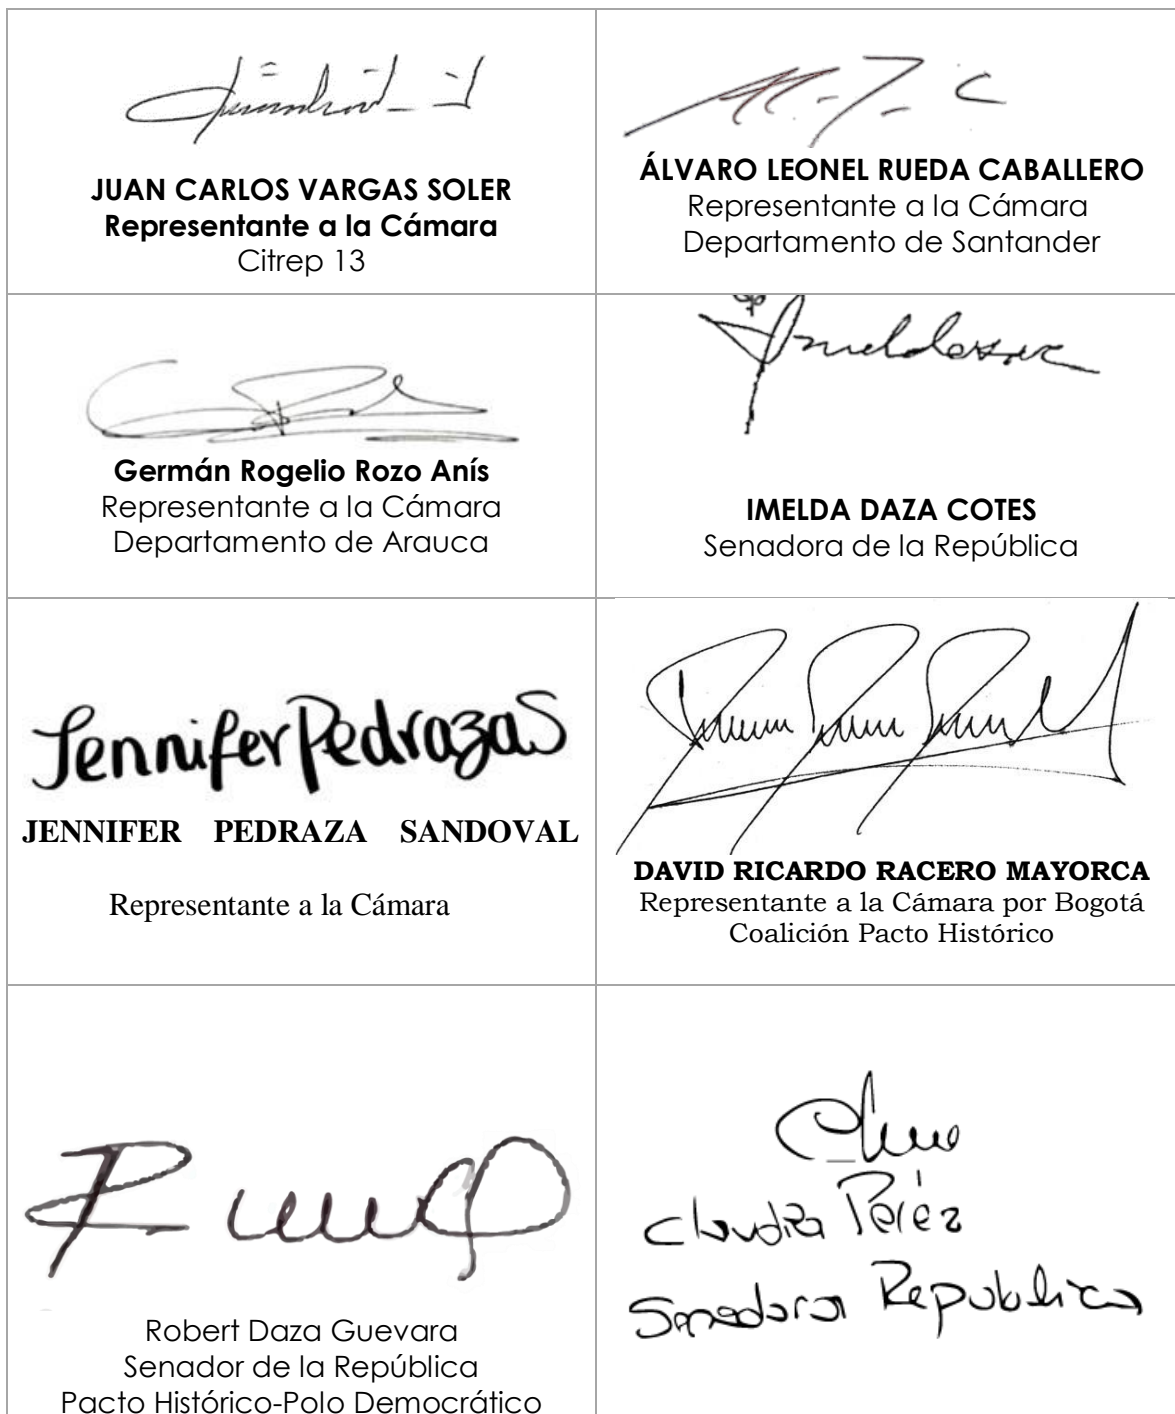 JUAN CARLOS VARGAS SOLER
Representante a la Cámara
Citrep 13
ÁLVARO LEONEL RUEDA CABALLERO
Representante a la Cámara
Departamento de Santander
Germán Rogelio Rozo Anís
Representante a la Cámara
Departamento de Arauca
IMELDA DAZA COTES
Senadora de la República
Jennifer Pedraza S
JENNIFER PEDRAZA SANDOVAL
Representante a la Cámara
DAVID RICARDO RACERO MAYORCA
Representante a la Cámara por Bogotá
Coalición Pacto Histórico
Robert Daza Guevara
Senador de la República
Pacto Histórico-Polo Democrático
Claudia Pérez
Senadora República